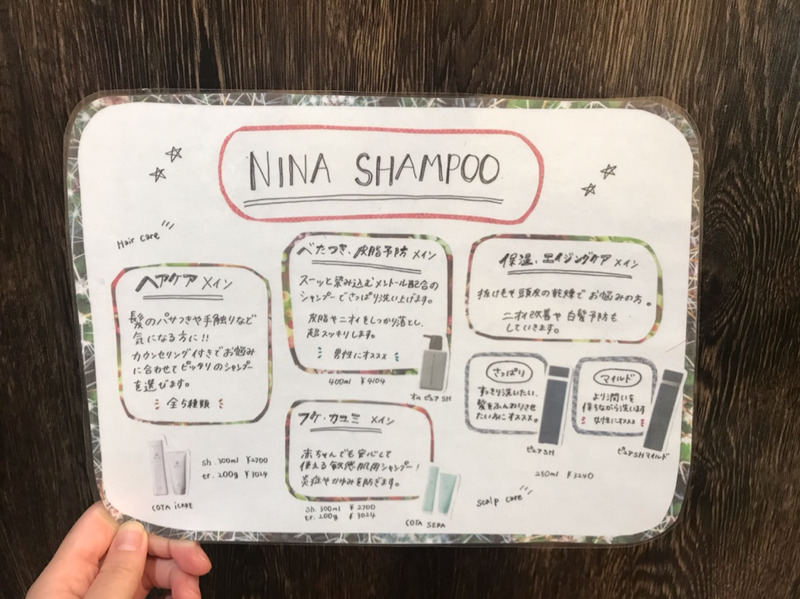 NINA SHAMPOO
Hair care
ヘアケア メイン
髪のパサつきや手触りなど
気になる方に!!
カウンセリング付きでお悩み
に合わせてピッタリのシャンプー
を選びます。
全5種類
sh. 300ml ¥2700
tr. 200g ¥3024
COTA iCARE
べたつき、皮脂予防 メイン
スーッと染み込むメントール配合の
シャンプーでさっぱり洗い上げます。
皮脂やニオイをしっかり落とし、
超スッキリします。
男性にオススメ
400ml ¥4104
ピュアSH
フケ・カユミ メイン
赤ちゃんでも安心して
使える敏感肌用シャンプー!
炎症やかゆみを防ぎます。
sh. 300ml ¥2700
tr. 200g ¥3024
COTA SERA
保湿、エイジングケア メイン
抜け毛や頭皮の乾燥でお悩みの方。
ニオイ改善や白髪予防も
していきます。
さっぱり
すっきり洗いたい、
髪をふんわりさせ
たい方にオススメ。
ピュアSH
マイルド
より潤いを
保ちながら洗います
女性にオススメ
ピュアSHマイルド
250ml ¥3240
Scalp care